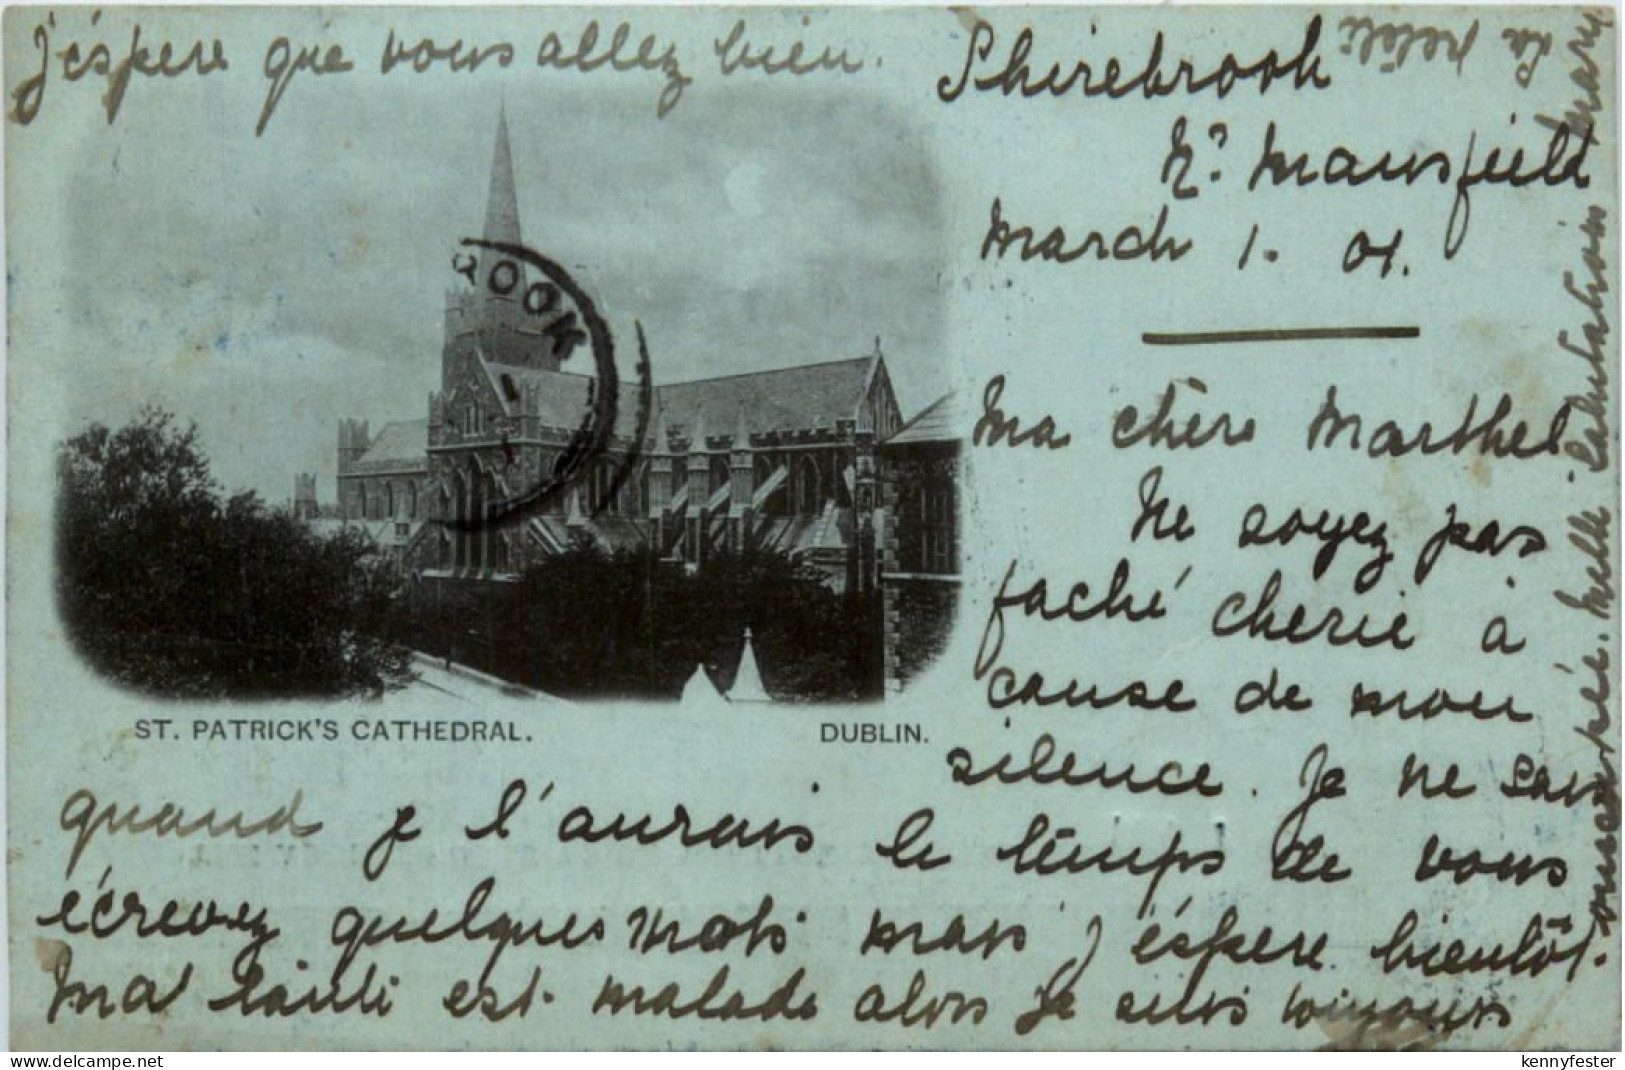 j'éspere que vous allez bien.
Shirebrook
Nr Mansfield
March 1. 01.
Ma chère Marthe
Ne soyez pas
faché cherie à
cause de mon
silence. Je ne sais
quand je l'aurais le temps de vous
écrevez quelques mots mais j'éspere bientôt.
Ma tante est malade alors je suis toujours
occupée. Mille salutations Mary
La petite
ROOK
ST. PATRICK'S CATHEDRAL. DUBLIN.
www.delcampe.net
kennyfester